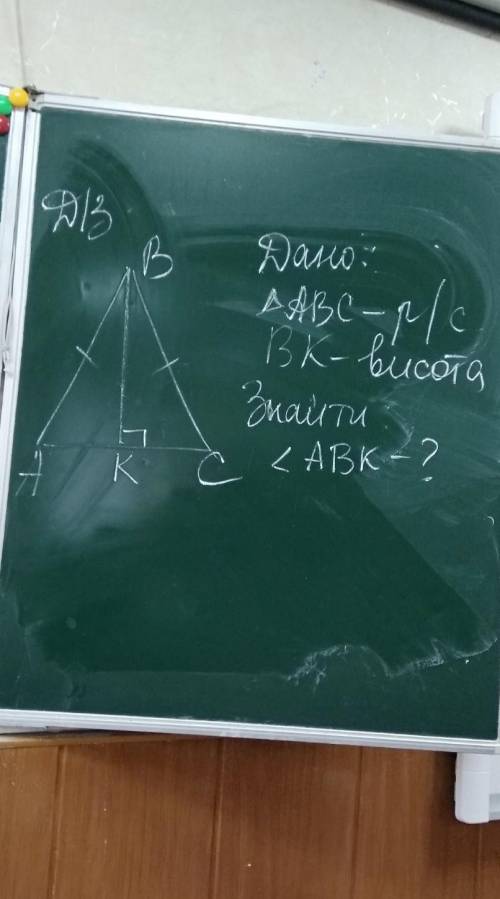 Д/З
B
A
K
C
Дано:
△ABC – р/с
BK – висота
Знайти
<ABK – ?